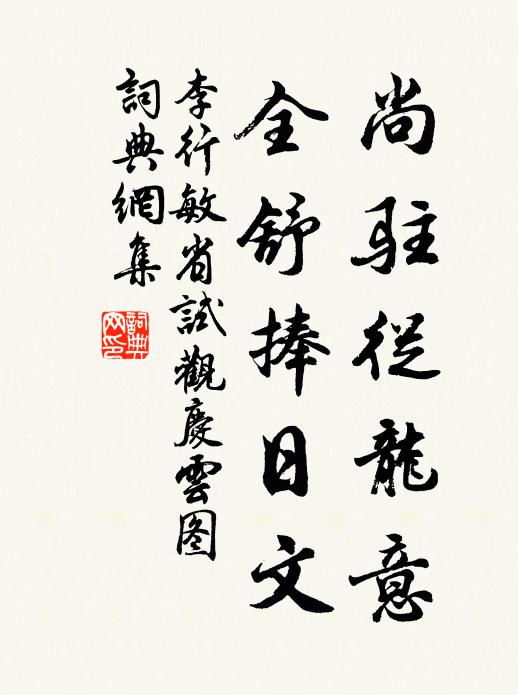 尚駐從龍意
全舒捧日文
李行敏省試觀慶雲图
詞典網集
詞典网印